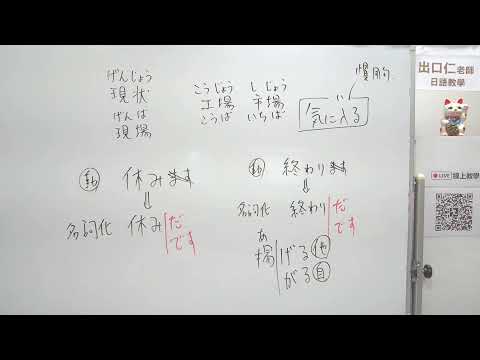 げんじょう
現状
げんば
現場
こうじょう しじょう
工場 市場
こうば いちば
慣用
気に入る
動 休みます
⇓
名詞化 休み だ
です
動 終わります
⇓
名詞化 終わり だ
です
あ
揚 げる 他
がる 自
出口仁老師
日語教學
LIVE 線上教學